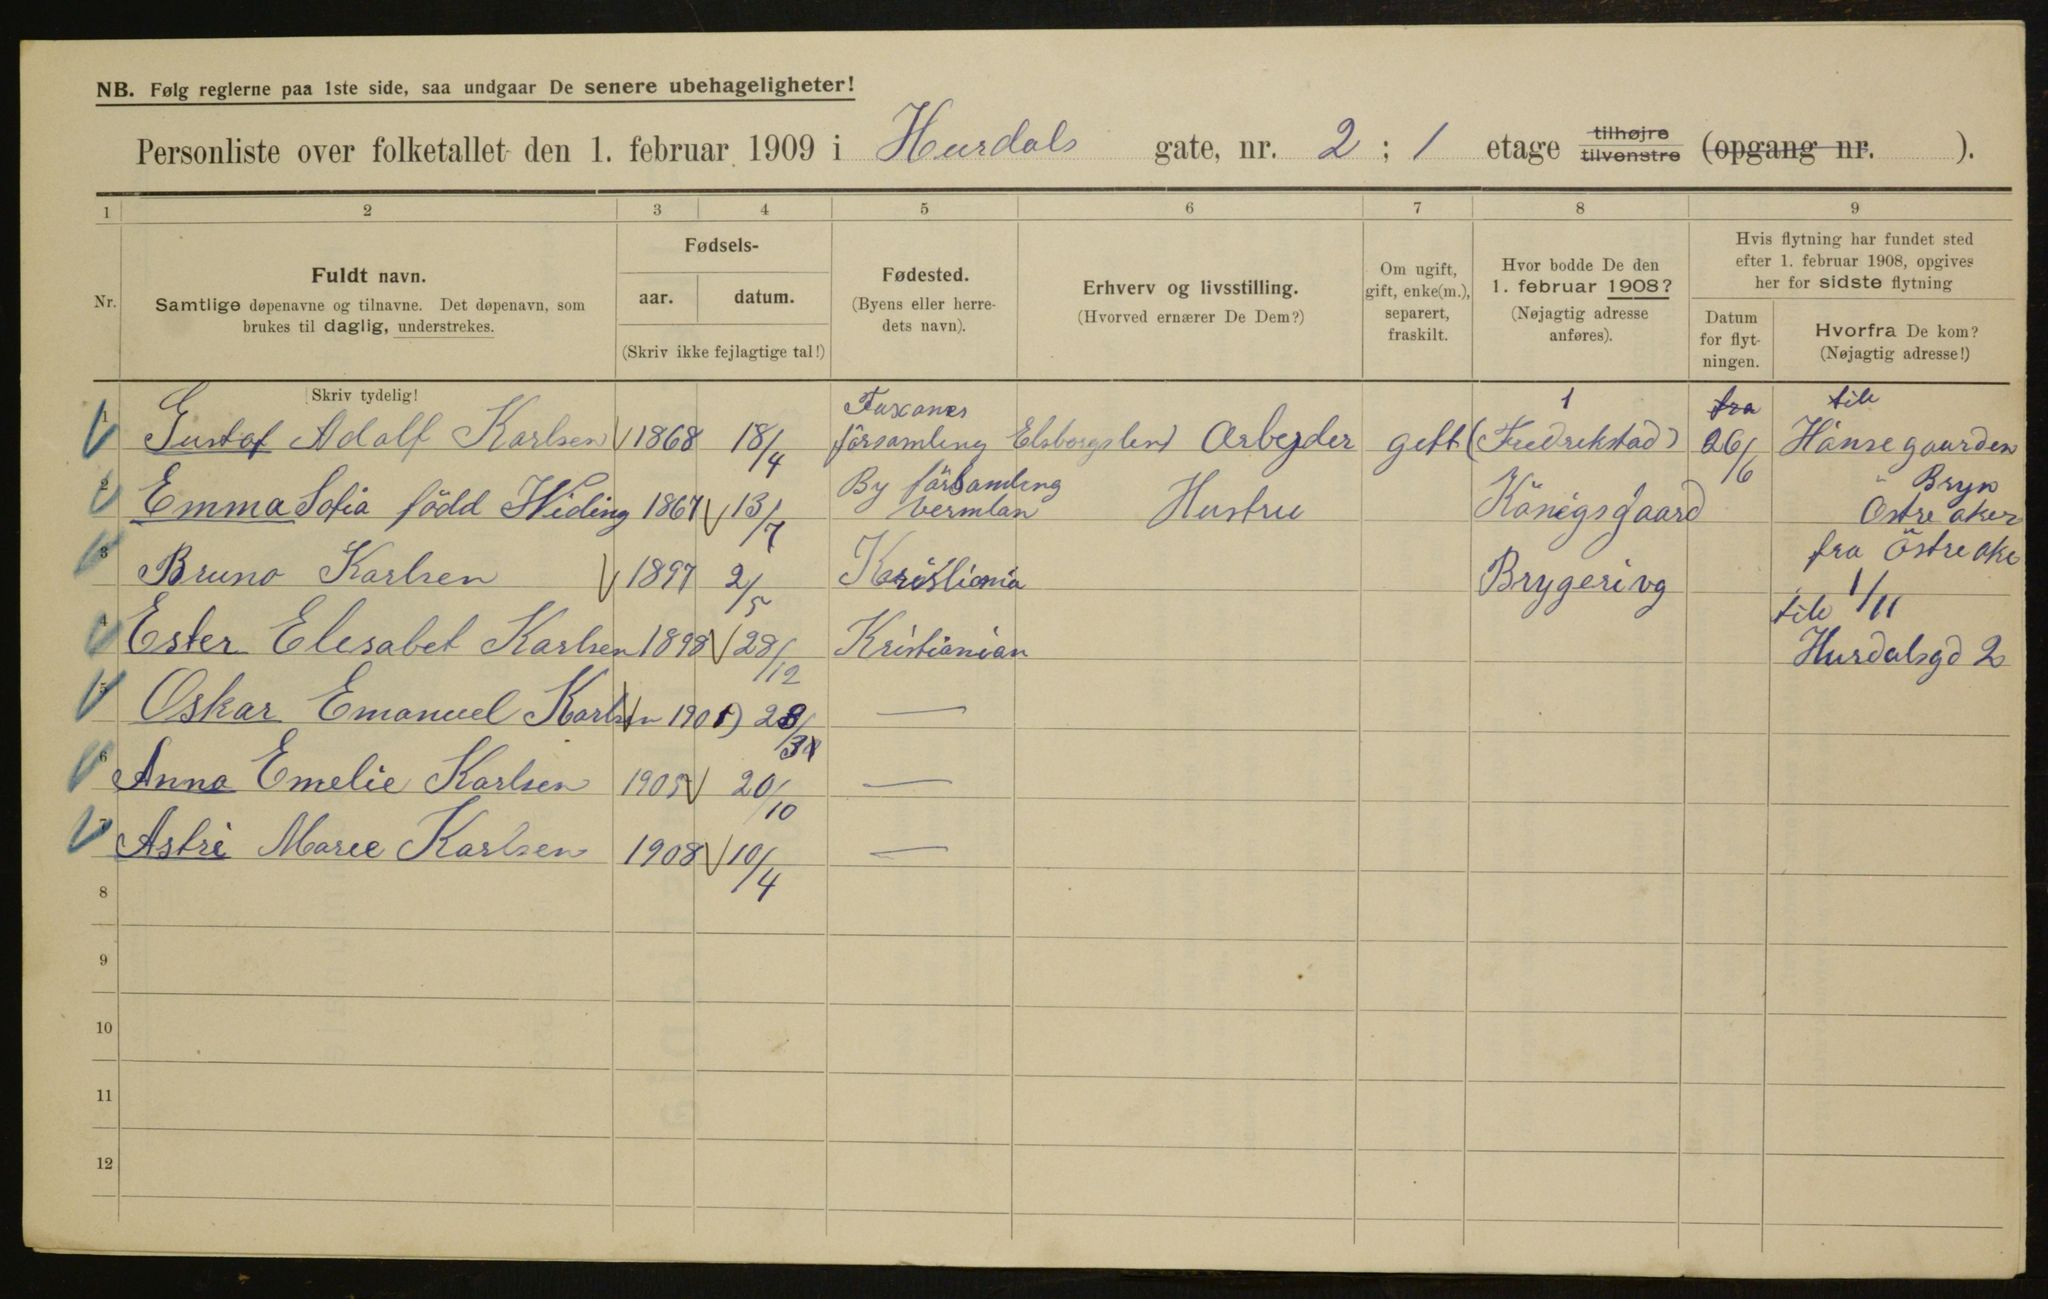 NB. Følg reglerne paa 1ste side, saa undgaar De senere ubehageligheter!
Personliste over folketallet den 1. februar 1909 i Hurdals gate, nr. 2 ; 1 etage tilhøjre tilvenstre (opgang nr. ).
1 2 3 4 5 6 7 8 9
Nr.
Fuldt navn.
Samtlige døpenavne og tilnavne. Det døpenavn, som
brukes til daglig, understrekes.
Fødsels-
aar. datum.
(Skriv ikke fejlagtige tal!)
Fødested.
(Byens eller herre-
dets navn).
Erhverv og livsstilling.
(Hvorved ernærer De Dem?)
Om ugift,
gift, enke(m.),
separert,
fraskilt.
Hvor bodde De den
1. februar 1908?
(Nøjagtig adresse
anføres).
Hvis flytning har fundet sted
efter 1. februar 1908, opgives
her for sidste flytning
Datum
for flyt-
ningen.
Hvorfra De kom?
(Nøjagtig adresse!)
Skriv tydelig!
1 Gustaf Adolf Karlsen 1868 18/4 församling Elsborgslen Arbejder gett (Fredrikstad) 26/6 fra till Hänsegaarden
2 Emma Sofia född Hiding 1867 13/7 By församling Vermlan Hustru Känigsgaard Bryn Östre aker
3 Bruno Karlsen 1897 2/5 Kristiania Brygerivg fra Östre ake
4 Ester Elisabet Karlsen 1898 28/12 Kristianian till 1/11 Hurdalsgd 2
5 Oskar Emanuel Karlsen 1901 —
6 Anna Emelie Karlsen 1905 20/10 —
7 Astri Marie Karlsen 1908 10/4 —
8
9
10
11
12